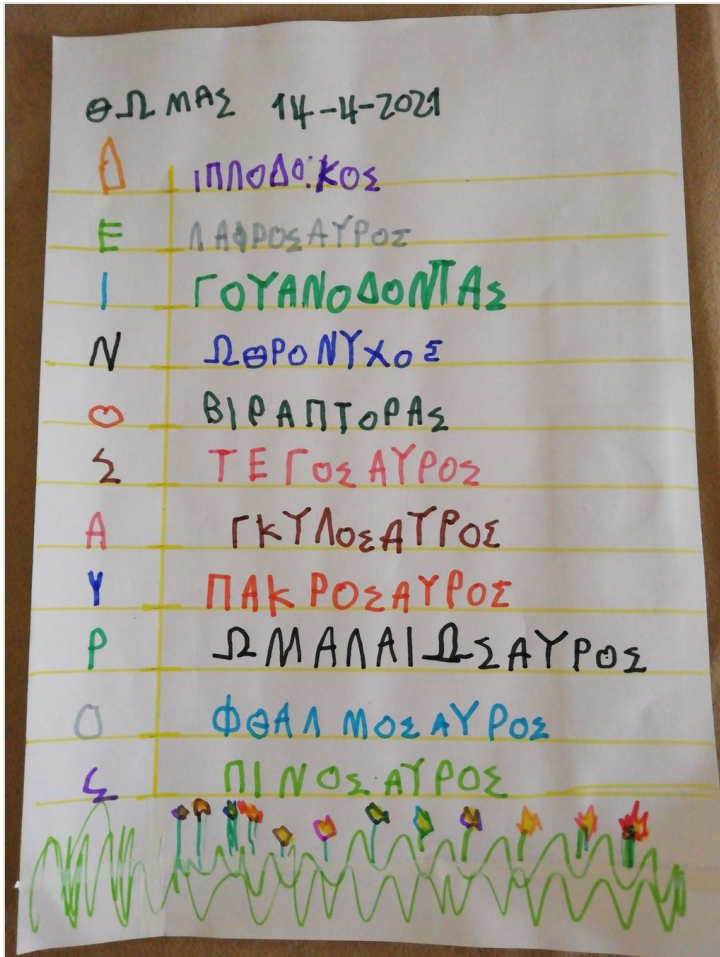 ΘΩΜΑΣ 14-4-2021
Δ ΙΠΛΟΔΟΚΟΣ
Ε ΛΑΦΡΟΣΑΥΡΟΣ
Ι ΓΟΥΑΝΟΔΟΝΤΑΣ
Ν ΩΘΡΟΝΥΧΟΣ
Ο ΒΙΡΑΠΤΟΡΑΣ
Σ ΤΕΓΟΣΑΥΡΟΣ
Α ΓΚΥΛΟΣΑΥΡΟΣ
Υ ΠΑΚΡΟΣΑΥΡΟΣ
Ρ ΩΜΑΛΑΙΩΣΑΥΡΟΣ
Ο ΦΘΑΛΜΟΣΑΥΡΟΣ
Σ ΠΙΝΟΣΑΥΡΟΣ